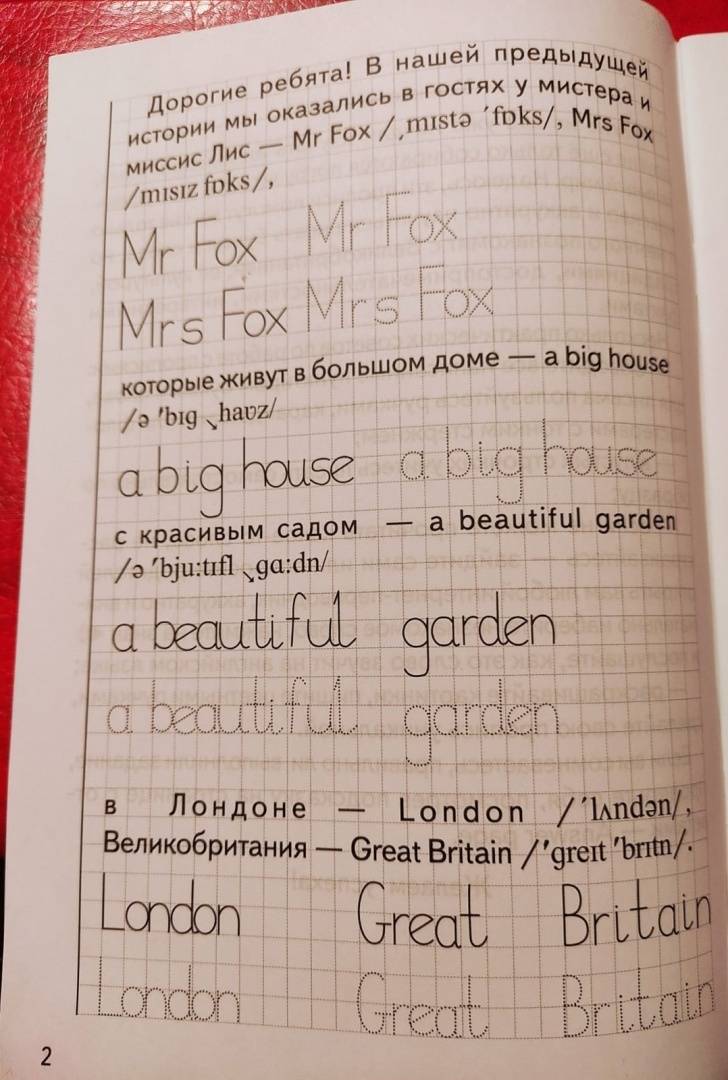 Дорогие ребята! В нашей предыдущей
истории мы оказались в гостях у мистера и
миссис Лис — Mr Fox /ˌmɪstə ˈfɒks/, Mrs Fox
/mɪsɪz fɒks/,
Mr Fox Mr Fox
Mrs Fox Mrs Fox
которые живут в большом доме — a big house
/ə ˈbɪg ↘haʊz/
a big house a big house
с красивым садом — a beautiful garden
/ə ˈbju:tɪfl ↘gɑ:dn/
a beautiful garden
a beautiful garden
в Лондоне — London /ˈlʌndən/,
Великобритания — Great Britain /ˈgreɪt ˈbrɪtn/.
London Great Britain
London Great Britain
2